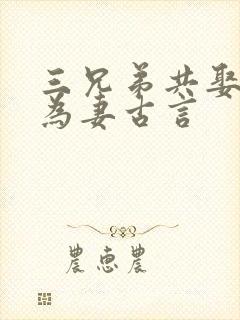 三兄弟共娶
為妻古言
農惠農